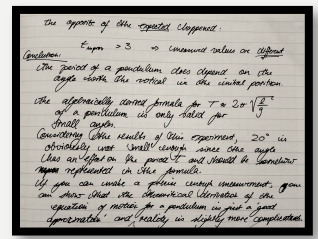 the opposite of the expected happened:
t > 3 ⇒ measured values are different
Conclusion:
the period of a pendulum does depend on the
angle with the vertical in the initial position.
the algebraically derived formula for T ≈ 2π √(ℓ/g)
of a pendulum is only valid for
small angles.
Considering the results of this experiment, 20° is
obviously not "small" enough since the angle
has an effect on the period T and should be somehow
represented in the formula.
If you can make a precise enough measurement, you
can show that the theoretical derivation of the
equation of motion for a pendulum is just "a good
approximation" and reality is slightly more complicated.